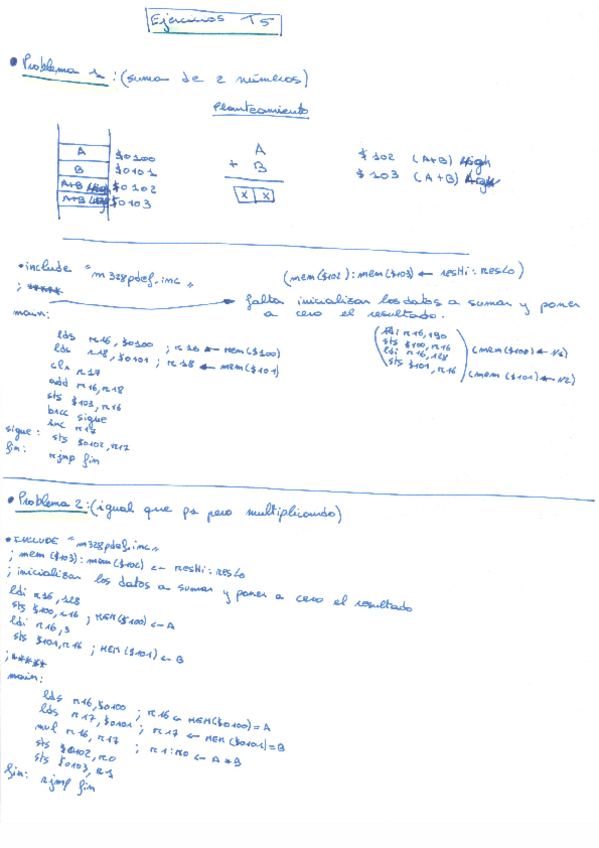 Ejercicios T5
• Problema 1: (suma de 2 números)
Planteamiento
A $0100
B $0101
A+B High $0102
A+B $0103
A
+ B
x x
$102 (A+B) High
$103 (A+B)
•include "m328pdef.inc"
(mem($102):mem($103) ← resHi:resLo)
; *****
falta inicializar los datos a sumar y poner
a cero el resultado.
main:
lds r16,$0100 ; r16 ← mem($100)
lds r18,$0101 ; r18 ← mem($101)
clr r17
add r16,r18
sts $103,r16
brcc sigue
inc r17
sigue: sts $0102,r17
fin: rjmp fin
ldi r16,190
sts $100,r16
ldi r16,128
sts $101,r16
(mem($100)←N1)
(mem($101)←N2)
• Problema 2:(igual que p1 pero multiplicando)
•INCLUDE "m328pdef.inc"
; mem($103):mem($102) ← resHi:resLo
; inicializar los datos a sumar y poner a cero el resultado
ldi r16,128
sts $100,r16 ; MEM($100)←A
ldi r16,3
sts $101,r16 ; MEM($101)←B
;*****
main:
lds r16,$0100 ; r16 ← MEM($0100)=A
lds r17,$0101 ; r17 ← MEM($0101)=B
mul r16,r17 ; r1:r0 ← A*B
sts $0102,r0
sts $0103,r1
fin: rjmp fin